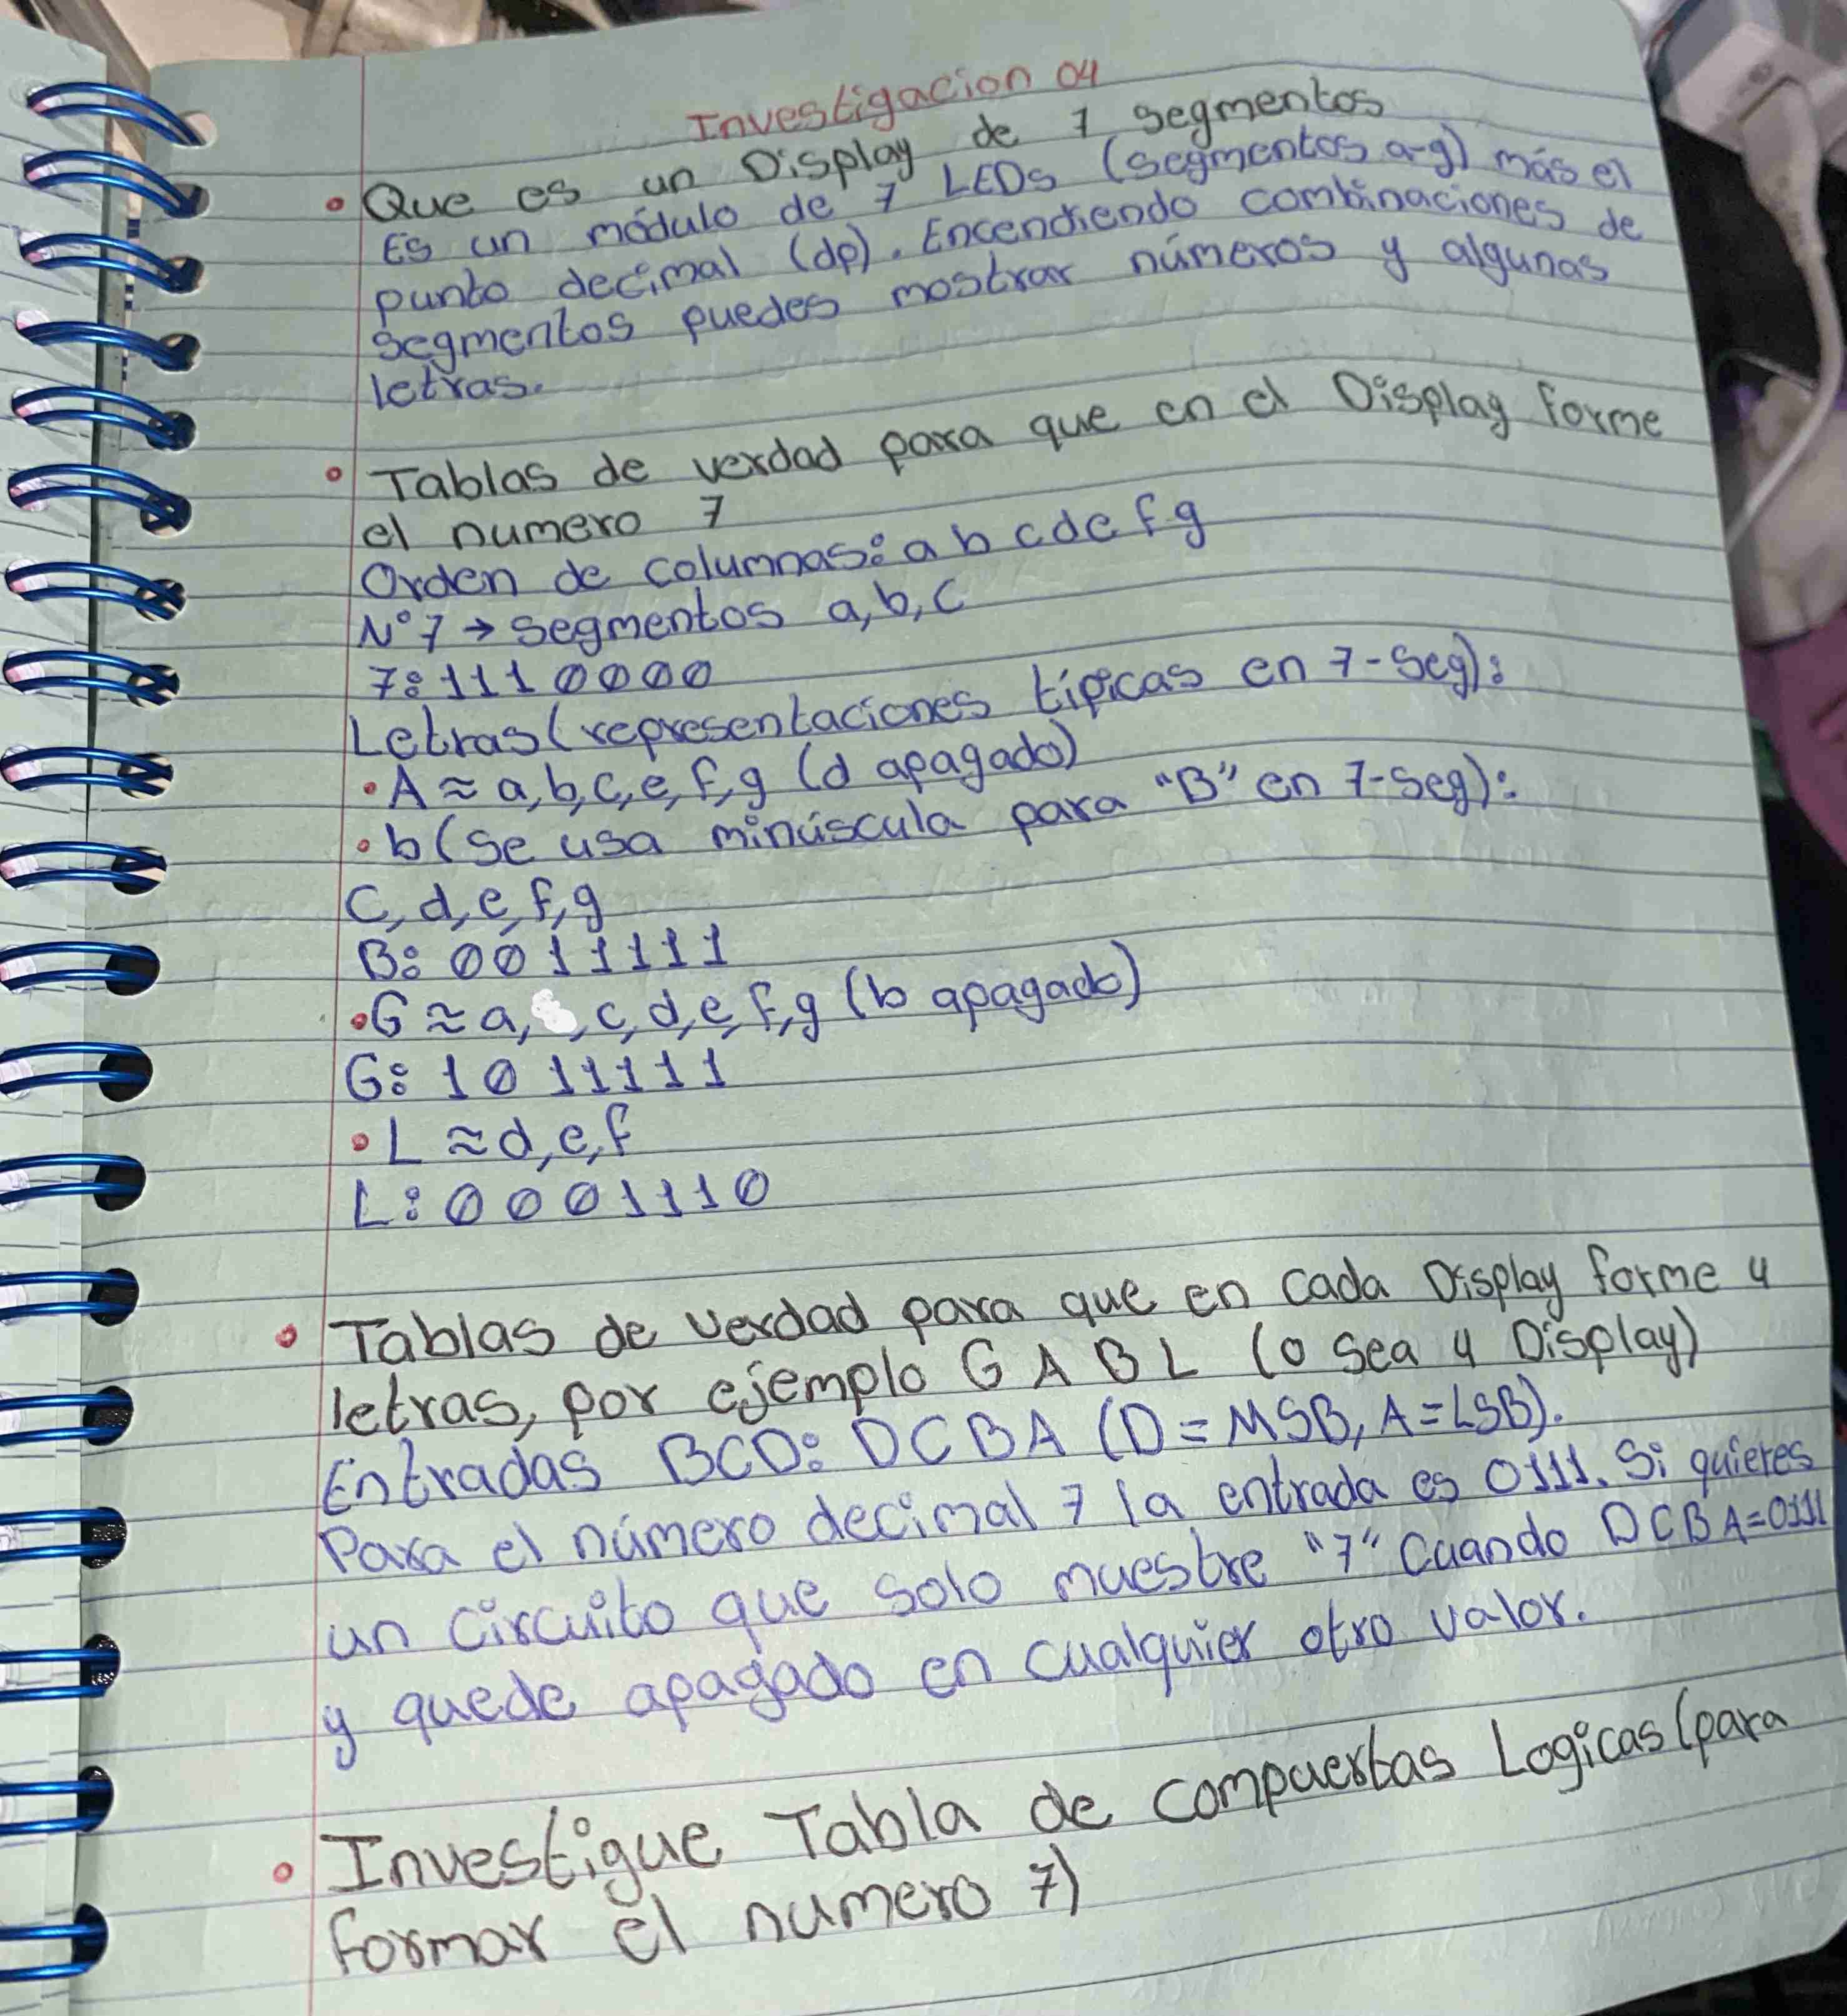 Investigacion 04
• Que es un Display de 7 segmentos
Es un módulo de 7 LEDs (segmentos a-g) más el
punto decimal (dp). Encendiendo combinaciones de
segmentos puedes mostrar números y algunas
letras.
• Tablas de verdad para que en el Display forme
el numero 7
Orden de columnas: a b c d e f g
N°7 → segmentos a, b, c
7: 1 1 1 0 0 0 0
Letras (representaciones típicas en 7-seg):
• A ≈ a, b, c, e, f, g (d apagado)
• b (se usa minúscula para "B" en 7-seg):
c, d, e, f, g
B: 0 0 1 1 1 1 1
• G ≈ a, , c, d, e, f, g (b apagado)
G: 1 0 1 1 1 1 1
• L ≈ d, e, f
L: 0 0 0 1 1 1 0
• Tablas de verdad para que en cada Display forme 4
letras, por ejemplo G A B L (o sea 4 Display)
Entradas BCD: D C B A (D = MSB, A = LSB).
Para el número decimal 7 la entrada es 0111. Si quieres
un circuito que solo muestre "7" cuando D C B A = 0111
y quede apagado en cualquier otro valor.
• Investigue Tabla de compuertas Logicas (para
formar el numero 7)